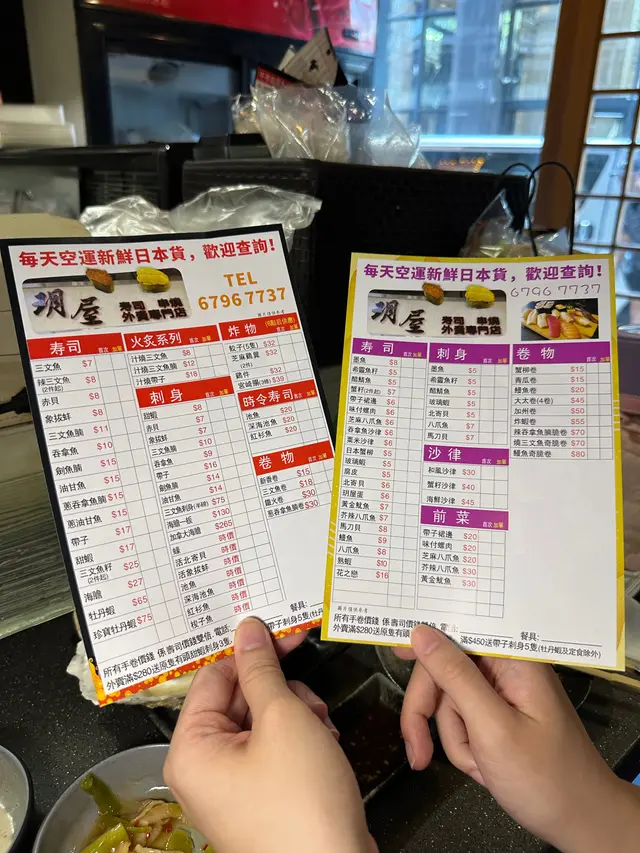 每天空運新鮮日本貨，歡迎查詢!
玥屋
壽司 串燒
外賣專門店
TEL
6796 7737
圖片僅供參考
壽司 首次 加單
三文魚 $7
辣三文魚 $8
(2件起)
赤貝 $8
象拔蚌 $8
三文魚腩 $11
吞拿魚 $10
劍魚腩 $15
油甘魚 $15
蔥吞拿魚腩 $15
蔥油甘魚 $15
帶子 $17
甜蝦 $17
三文魚籽 $25
(2件起)
海膽 $27
牡丹蝦 $65
珍寶牡丹蝦 $75
火炙系列 首次 加單
汁燒三文魚 $8
汁燒三文魚腩 $12
汁燒帶子 $18
刺身 首次 加單
甜蝦 $8
赤貝 $7
象拔蚌 $7
三文魚 $10
吞拿魚 $9
帶子 $16
劍魚腩 $14
油甘魚 $14
三文魚刺身(半磅) $75
海膽一板 $130
加拿大海膽 $265
蠔 時價
活北寄貝 時價
活象拔蚌 時價
池魚 時價
深海池魚 時價
紅衫魚 時價
梳子魚 時價
炸物 首次 加單
粒子(5隻) $32
芝麻雞翼 $32
(2件)
雞件 $32
宮崎蠔(3機) $39
時令壽司 首次 加單
池魚 $20
深海池魚 $20
紅衫魚 $20
卷物 首次 加單
新香卷 $15
三文魚卷 $18
鐵火卷 $30
蔥吞拿魚腩卷 $30
餐具:
所有手卷價錢 係壽司價錢雙倍,電話
外賣滿$280送原隻有頭甜蝦刺身3隻,
滿$450送帶子刺身5隻(牡丹
每天空運新鮮日本貨，歡迎查詢!
玥屋
壽司 串燒
外賣專門店
6796 7737
壽司 首次 加單
墨魚 $8
希靈魚籽 $5
醋鯖魚 $5
蟹籽(2件起) $7
帶子裙邊 $6
味付螺肉 $6
芝麻八爪魚 $6
吞拿魚沙律 $6
粟米沙律 $6
日本蟹柳 $5
玻璃蝦 $5
腐皮 $5
北寄貝 $6
玥屋蛋 $6
黃金魷魚 $7
芥辣八爪魚 $7
馬刀貝 $8
鰻魚 $9
八爪魚 $8
熟蝦 $10
花之戀 $16
刺身 首次 加單
墨魚 $5
希靈魚籽 $5
醋鯖魚 $5
玻璃蝦 $5
北寄貝 $5
八爪魚 $7
馬刀貝 $7
沙律 首次 加單
和風沙律 $30
蟹籽沙律 $40
海鮮沙律 $45
前菜 首次 加單
帶子裙邊 $20
味付螺肉 $20
芝麻八爪魚 $20
芥辣八爪魚 $30
黃金魷魚 $30
卷物 首次 加單
蟹柳卷 $15
青瓜卷 $15
鰻魚卷 $20
大太卷(4卷) $45
加州卷 $50
炸蝦卷 $55
辣吞拿魚腩脆卷 $70
燒三文魚奇脆卷 $70
鰻魚奇脆卷 $80
圖片僅供參考
餐具:
所有手卷價錢 係壽司價錢雙倍,電
外賣滿$280送原隻有頭
滿$450送帶子刺身5隻(牡丹蝦及定食除外)